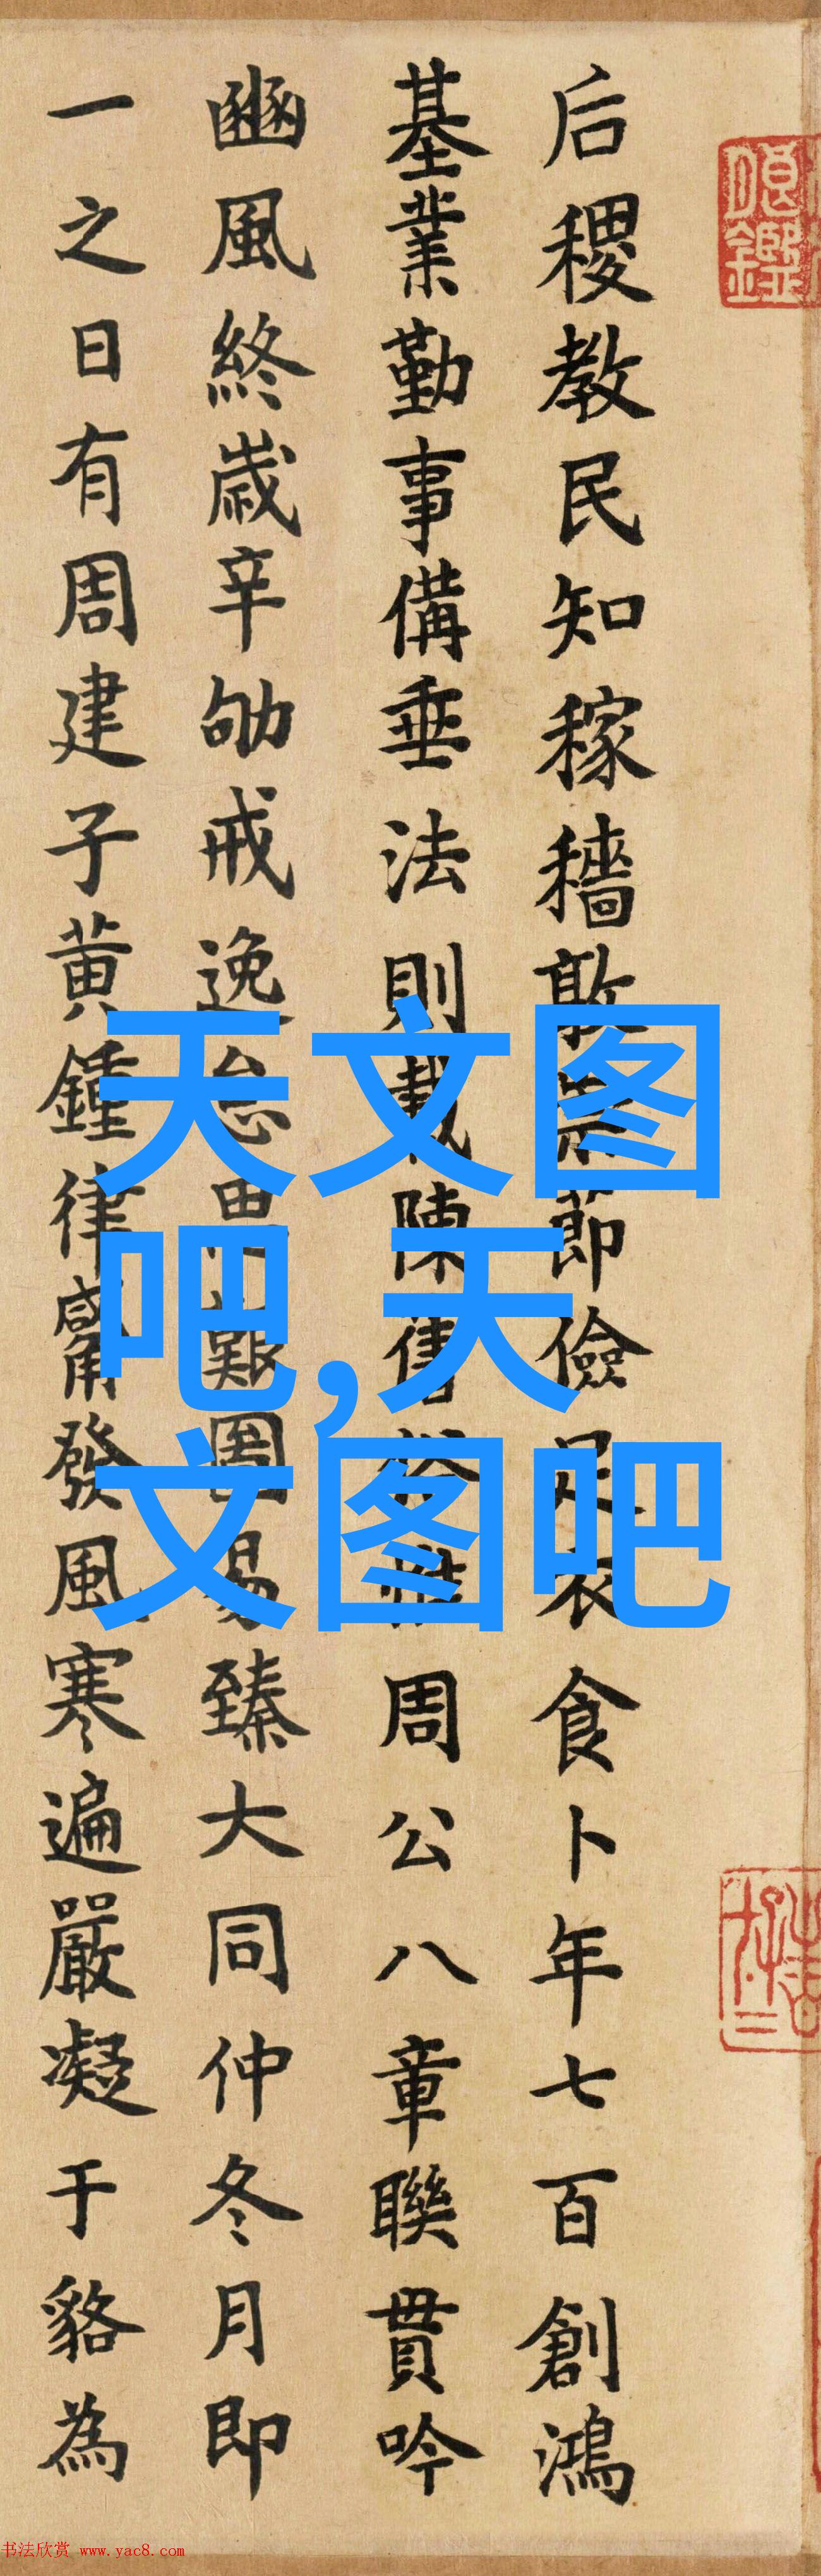 后稷教民知稼穡敦崇節儉足衣食卜年七百創鴻
基業勤事備垂法則載陳周公八章聯貫吟
豳風終歲辛劬戒逸怠思艱圖易臻大同仲冬月即
一之日有周建子黃鍾律觱發風寒遍嚴凝于貉為
天文图
吧,天
文图吧
书法欣赏 www.yac8.com